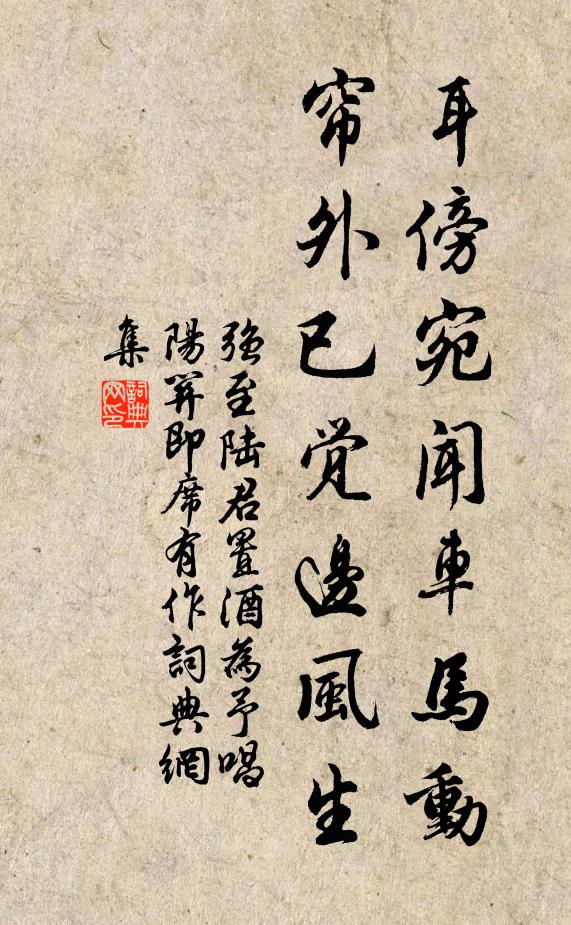 耳傍宛聞車馬動
帘外已觉邊風生
强至陆君置酒為予唱
陽關即席有作詞典網
集
詞典
网印